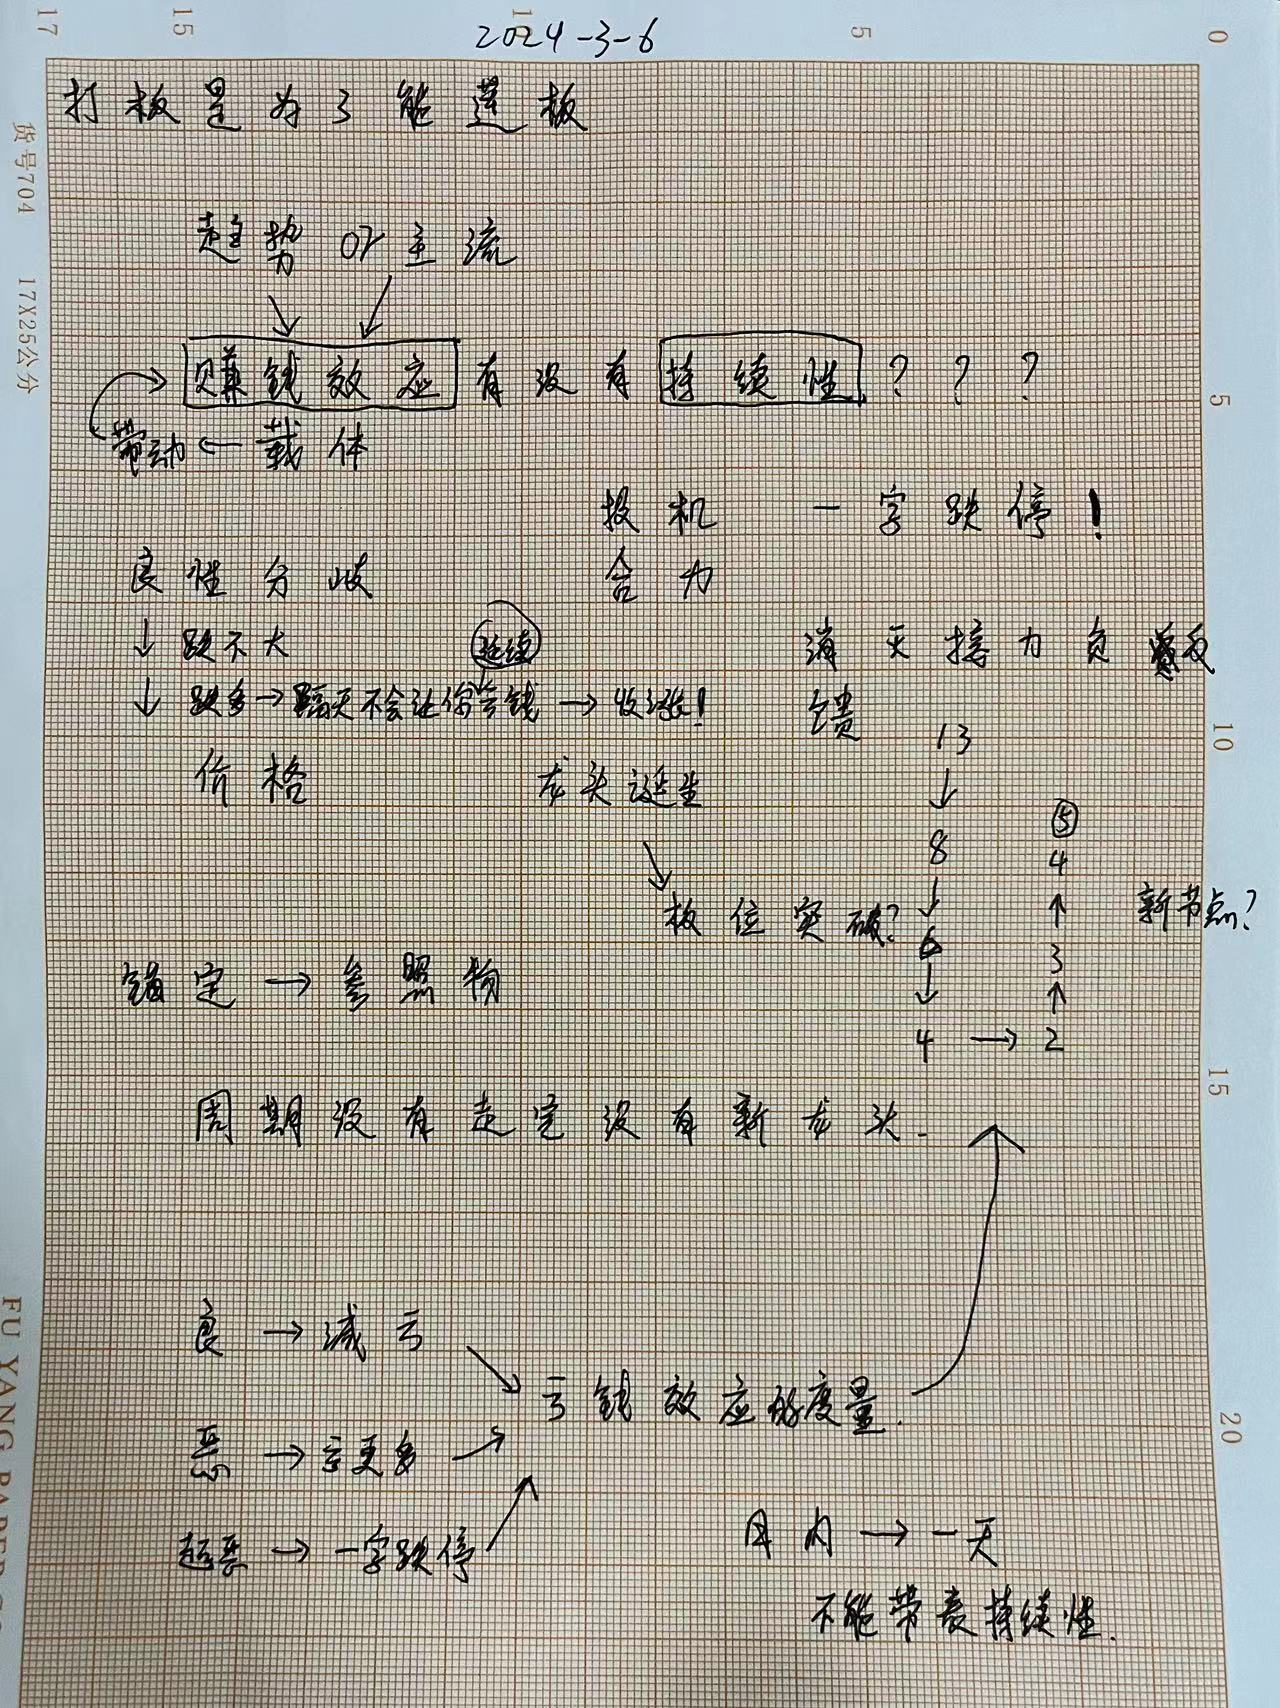 17 15 10 5 0
2024-3-6
打板是为了能莲板
货号704 17X25公分
趋势 or 主流
赚钱效应 有没有 持续性 ? ? ?
5
带动 ← 载体
投机 一字跌停!
良性分歧 合力
↓ 跌不大 延续
消灭接力负反
↓ 跌多 → 隔天不会让你亏钱 → 收涨!
馈
10
13
价格 龙头诞生
↓
⑤
8 4
↓ ↑
板位突破? 新节点?
6 3
锚定 → 参照物
↓ ↑
4 → 2
15
周期没有走完没有新龙头.
FU YANG PAPER
良 → 减亏
亏钱效应的度量.
20
恶 → 亏更多
日内 → 一天
超恶 → 一字跌停
不能带表持续性.